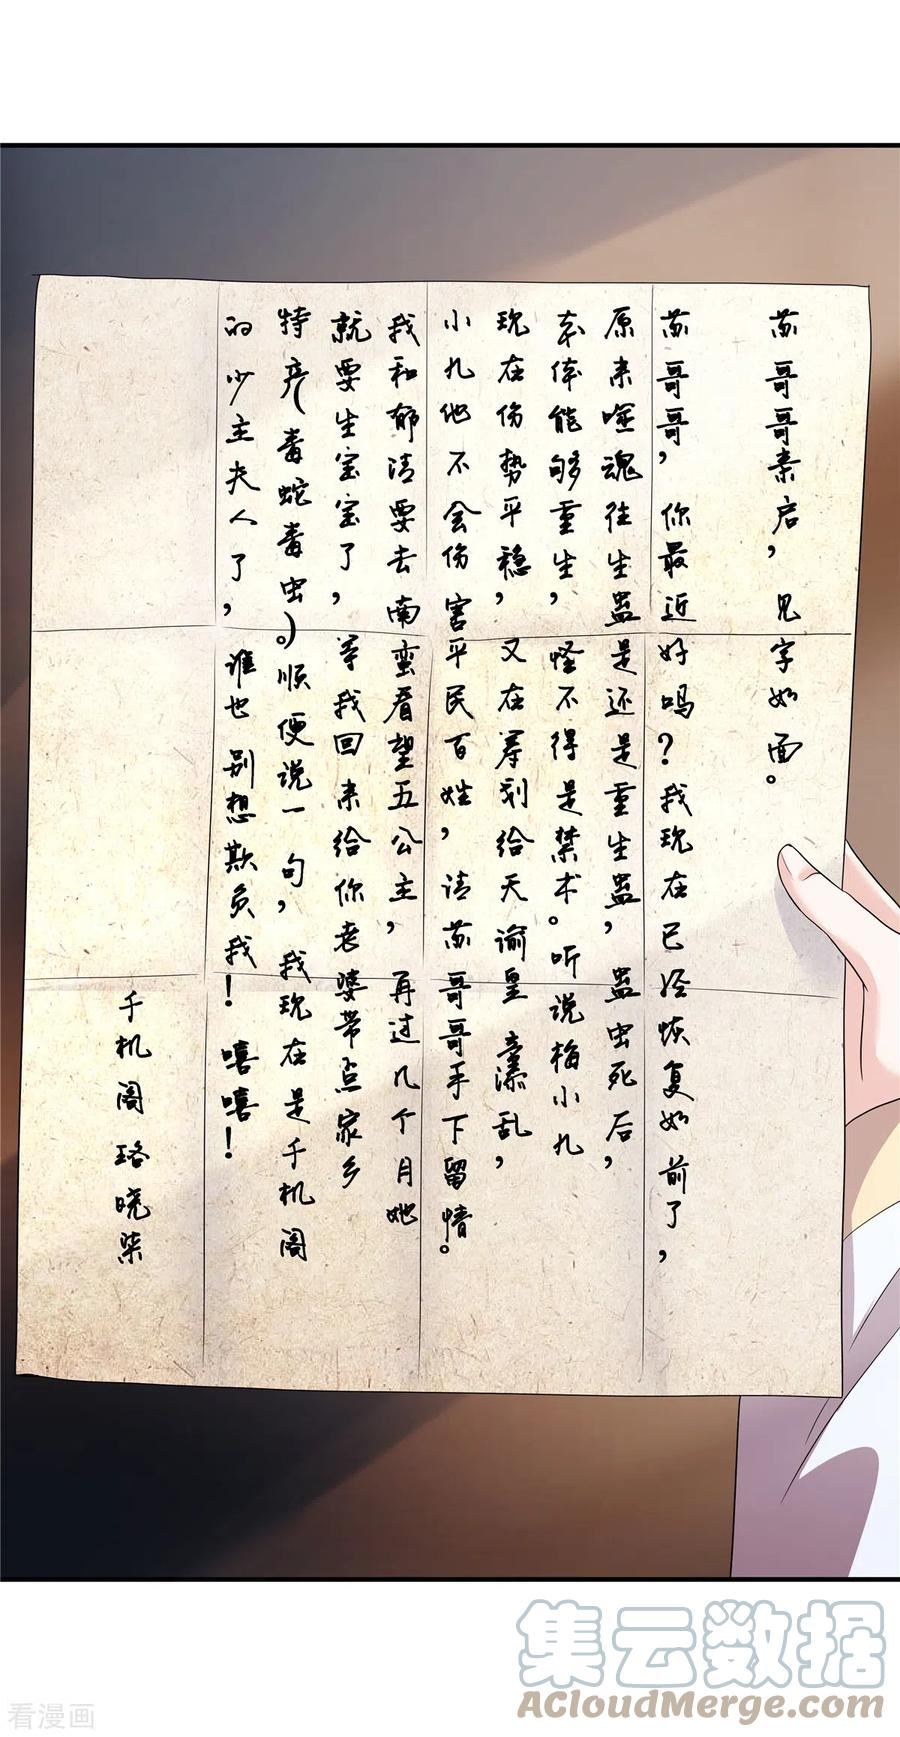 苏哥哥亲启，见字如面。
苏哥哥，你最近好吗？我现在已经恢复如前了，
原来噬魂往生蛊是还是重生蛊，蛊虫死后，
本体能够重生，怪不得是禁术。听说梅小九
现在伤势平稳，又在筹划给天谕皇室添乱，
小九他不会伤害平民百姓，请苏哥哥手下留情。
我和郁清要去南蛮看望五公主，再过几个月她
就要生宝宝了，等我回来给你老婆带点家乡
特产（毒蛇毒虫）。顺便说一句，我现在是千机阁
的少主夫人了，谁也别想欺负我！嘻嘻！
千机阁 珞晓柒
集云数据
ACloudMerge.com
看漫画